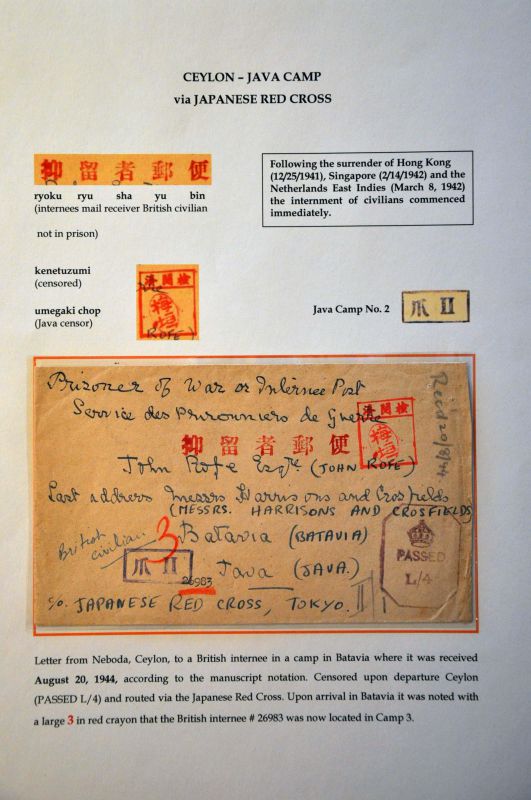 CEYLON – JAVA CAMP
via JAPANESE RED CROSS
抑留者郵便
ryoku ryu sha yu bin
(internees mail receiver British civilian
not in prison)
Following the surrender of Hong Kong
(12/25/1941), Singapore (2/14/1942) and the
Netherlands East Indies (March 8, 1942)
the internment of civilians commenced
immediately.
kenetuzumi
(censored)
umegaki chop
(Java censor)
検閲済
梅垣
ROFE)
Java Camp No. 2
爪 II
Prisoner of War or Internee Post
Service des Prisonniers de Guerre
検閲済
梅垣
Recd 20/8/44
抑留者郵便
John Rofe Esqre (JOHN ROFE)
Last address Messrs Harrisons and Crosfields
(MESSRS. HARRISONS AND CROSFIELDS)
British civilian
3
Batavia (BATAVIA)
PASSED
L/4
爪 II
26983
Java (JAVA.)
c/o. JAPANESE RED CROSS, TOKYO.
Letter from Neboda, Ceylon, to a British internee in a camp in Batavia where it was received
August 20, 1944, according to the manuscript notation. Censored upon departure Ceylon
(PASSED L/4) and routed via the Japanese Red Cross. Upon arrival in Batavia it was noted with
a large 3 in red crayon that the British internee # 26983 was now located in Camp 3.